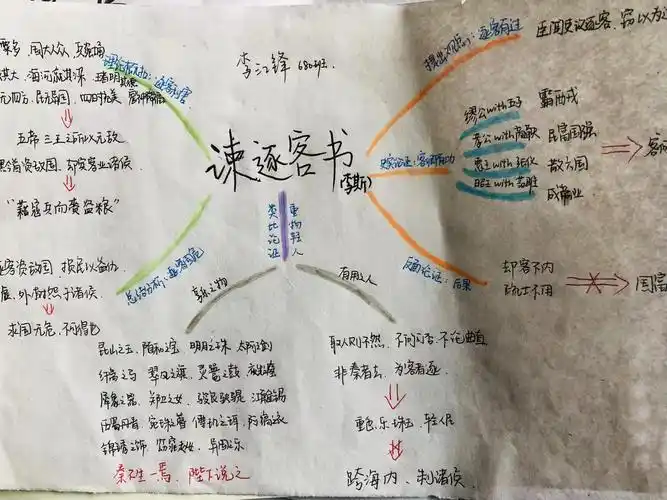 李江锋 680班.
谏逐客书
(李斯)
提出观点：逐客有过
臣闻吏议逐客，窃以为过
史实论证：客有功
缪公with五子
霸西戎
孝公with商鞅
民富国强
惠王with张仪
散六国
昭王with范雎
成帝业
反面论证：后果
却客不内
疏士不用
国富
理论
地广 粟多 国大众 兵强
五帝 三王之所以无敌
黔首资敌国，却宾客业诸侯
"藉寇兵而赍盗粮"
总结分析：逐客国危
逐客资敌国，损民以益仇
虚，外树怨于诸侯
求国无危，不可得也
类比论证
重物轻人
享乐之物
有用之人
昆山之玉 随和之宝 明月之珠 太阿之剑
纤离之马 翠凤之旗 灵鼍之鼓
犀象之器 郑卫之女 骏良駃騠 江南金锡
西蜀丹青 宛珠簪 傅玑之珥 阿缟之衣
锦绣之饰 窈窕赵女 异国之乐
秦不生一焉，陛下说之
取人则不然，不问可否，不论曲直
非秦者去，为客者逐
重色、乐、珠玉，轻人民
跨海内、制诸侯